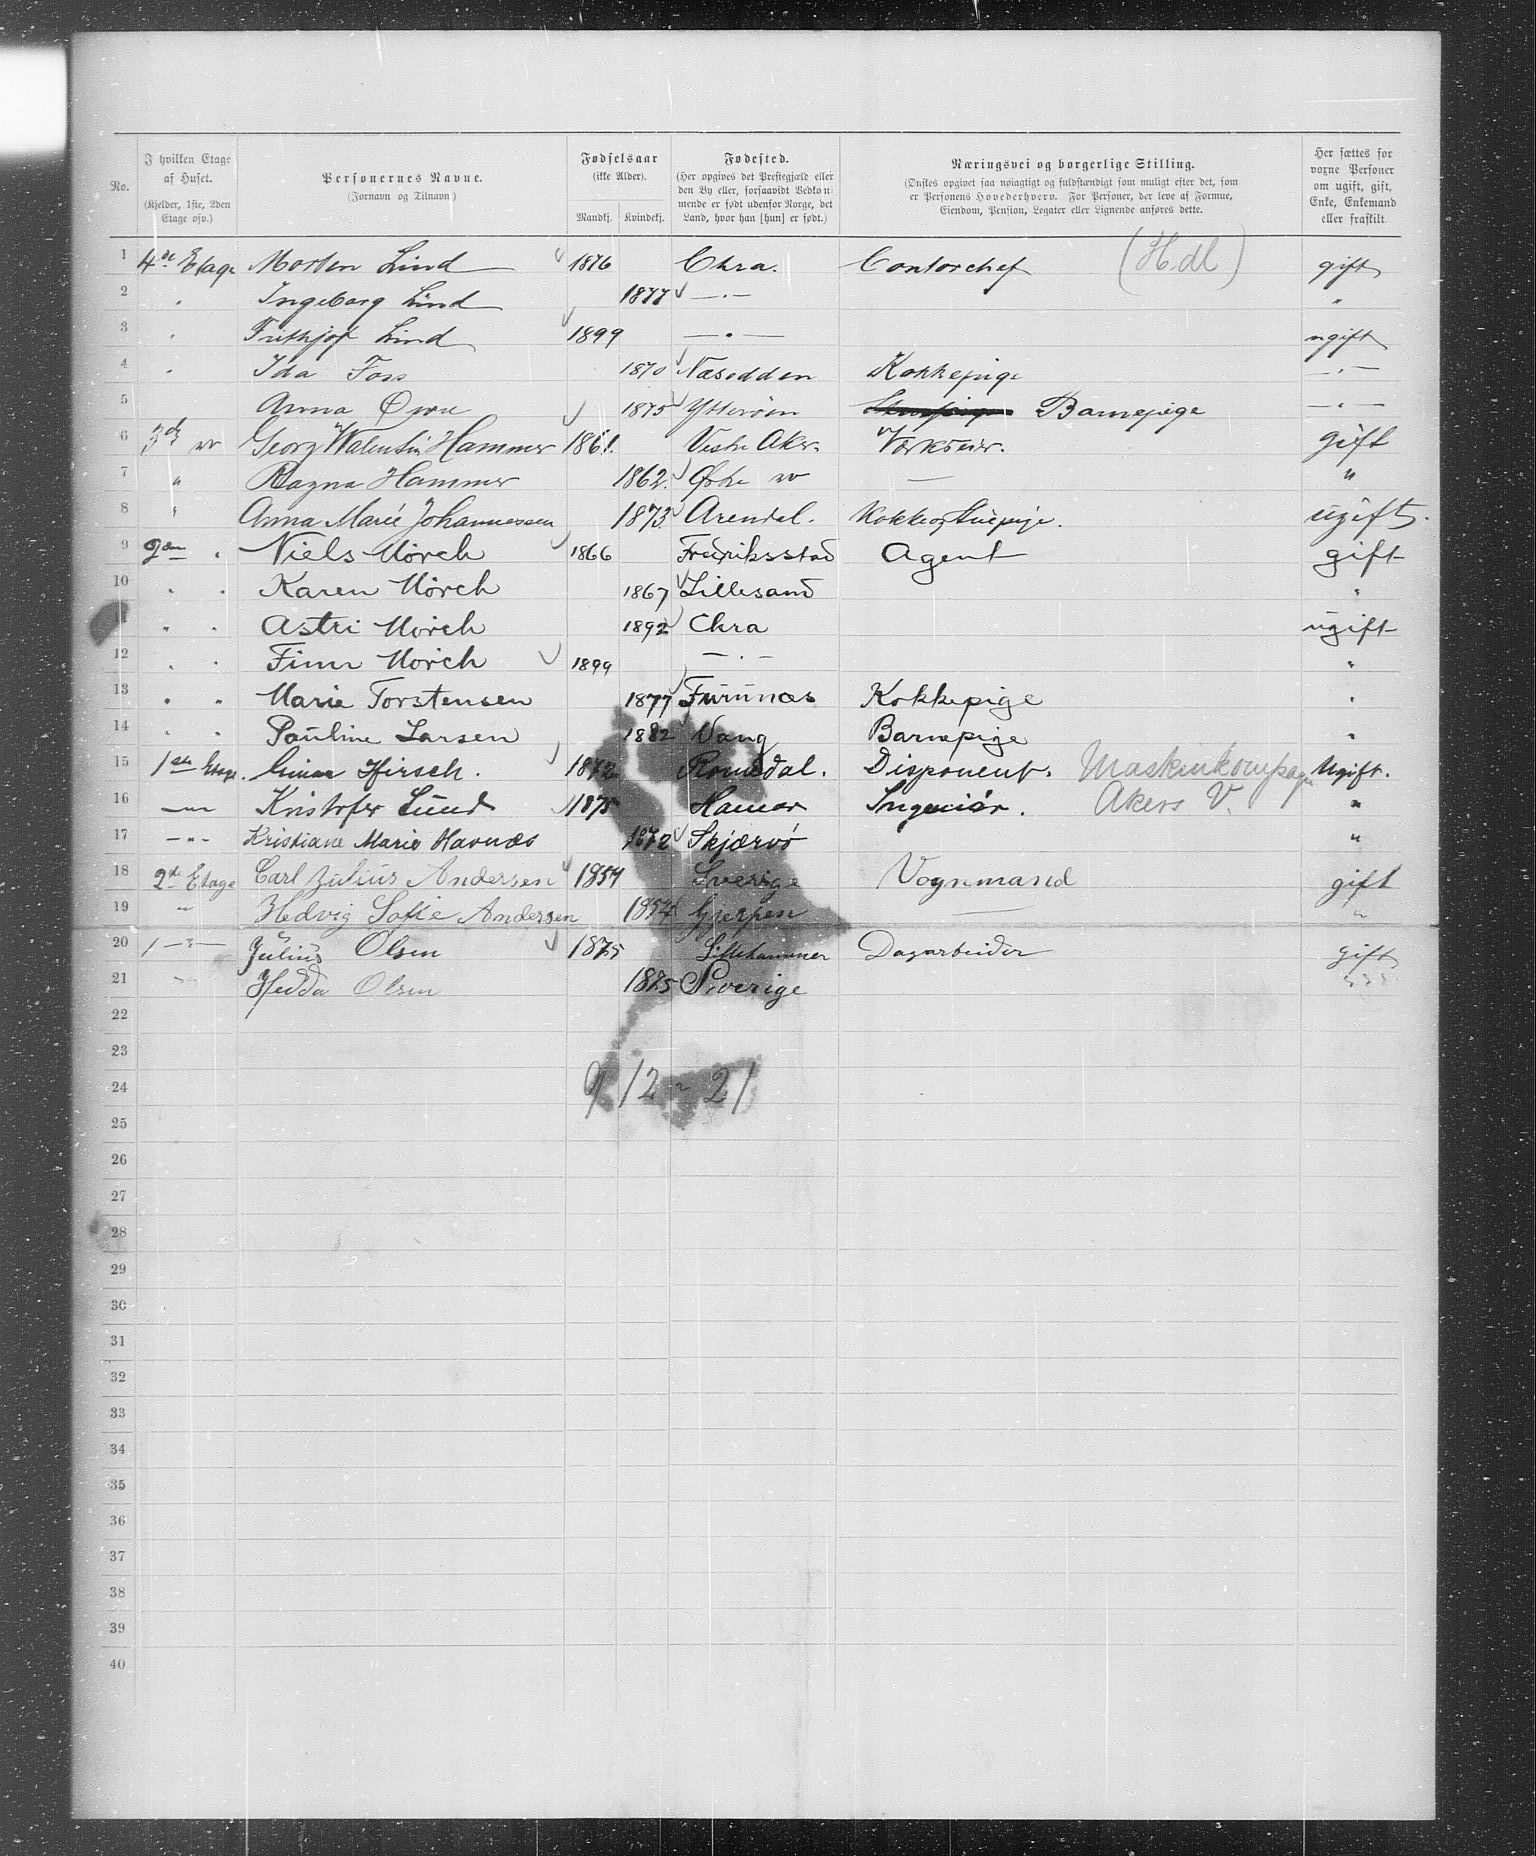 No. | I hvilken Etage af Huset. (Kjelder, 1ste, 2den Etage osv.) | Personernes Navne. (Fornavn og Tilnavn) | Fødselsaar (ikke Alder). Mandkj. | Kvindekj. | Fødested. (Her opgives det Prestegjæld eller den By eller, forsaavidt Vedkommende er født udenfor Norge, det Land, hvor han [hun] er født.) | Næringsvei og borgerlige Stilling. (Ønskes opgivet saa nøiagtigt og fuldstændigt som muligt efter det, som er Personens Hovederhverv. For Personer, der leve af Formue, Eiendom, Pension, Legater eller Lignende anføres dette. | Her sættes for vorne Personer om ugift, gift, Enke, Enkemand eller fraskilt.
1 4de Etage Morten Lind 1876 Chra. Contorchef (Hdl) gift
2 " Ingeborg Lind 1877 —"— "
3 " Frithjof Lind 1899 —"— ugift
4 " Ida Foss 1870 Næsodden Kokkepige —"—
5 Anna Øvre 1875 Ytterøen Barnepige —"—
6 3die Georg Valentin Hammer 1861. Vestre Aker. gift
7 " Ragna Hammer 1862. Østre — "
8 " Anna Marie Johannessen 1873. Arendal. Kokke og Stuepige. ugift.
9 2den " Niels Mörch 1866 Fredriksstad Agent gift
10 " " Karen Mörch 1867 Lillesand "
11 " " Astri Mörch 1892 Chra ugift
12 " " Finn Mörch 1899 —"— "
13 " " Marie Torstensen 1877 Furunæs Kokkepige "
14 " " Pauline Larsen 1882 Vang Barnepige "
15 1ste Etage. Hirsch. 1872 Romedal. Disponent. Maskinkompagni Ugift.
16 —"— Kristofer Lund 1875 Hamar Ingeniör. Akers V. "
17 —"— Kristiane Marie Havnæs 1872 Skjærvö "
18 2de Etage Carl Julius Andersen 1854 Sverige Vognmand gift
19 " Hedvig Sofie Andersen 1854 Gjerpen — "
20 1 —"— Julius Olsen 1875 Lillehammer Dagarbeider gift
21 —"— Hedda Olsen 1875 Sverige "
22
23
24 9 12 - 21
25
26
27
28
29
30
31
32
33
34
35
36
37
38
39
40